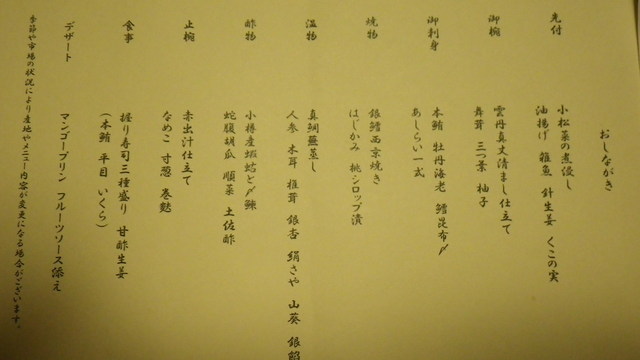 おしながき
先付
小松菜の煮浸し
油揚げ 雑魚 針生姜 くこの実
御椀
雲丹真丈清まし仕立て
舞茸 三つ葉 柚子
御刺身
本鮪 牡丹海老 鱈昆布〆
あしらい一式
焼物
銀鱈西京焼き
はじかみ 桃シロップ漬
温物
真鯛蕪蒸し
人参 木耳 椎茸 銀杏 絹さや 山葵 銀餡
酢物
小樽産蝦蛄と〆鰊
蛇腹胡瓜 順菜 土佐酢
止椀
赤出汁仕立て
なめこ 寸葱 巻麩
食事
握り寿司三種盛り 甘酢生姜
(本鮪 平目 いくら)
デザート
マンゴープリン フルーツソース添え
季節や市場の状況により産地やメニュー内容が変更になる場合がございます。